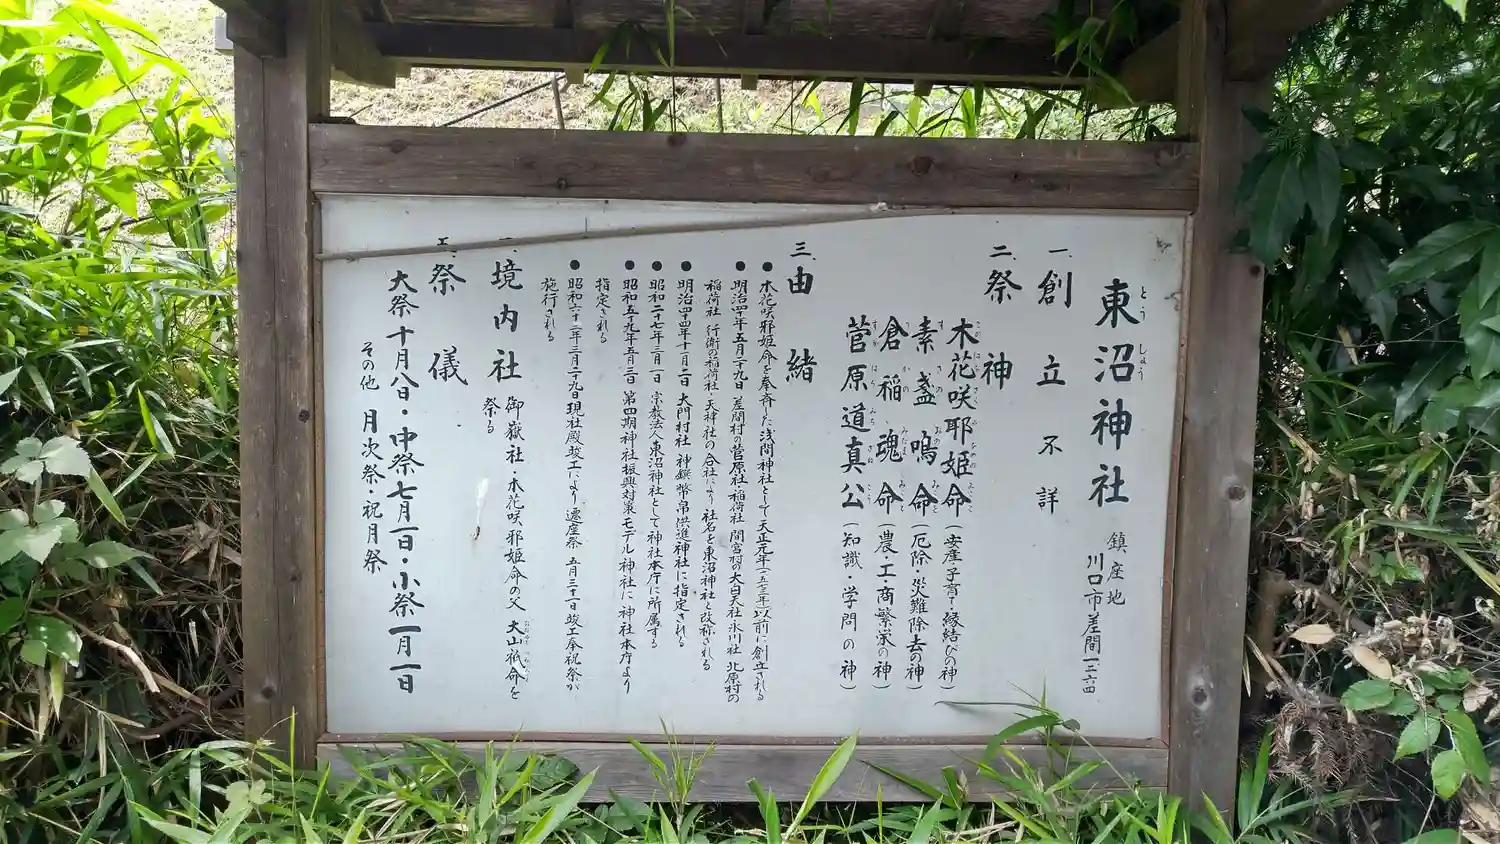 東沼神社
とうしょう
鎮座地
川口市差間一二六四
一、創立不詳
二、祭神
木花咲耶姫命(安産・子育て・縁結びの神)
素盞嗚命(厄除・災難除去の神)
倉稲魂命(農・工・商繁栄の神)
菅原道真公(知識・学問の神)
三、由緒
●木花咲邪姫命を奉斉した浅間神社として天正元年(一五七三年)以前に創立される
●明治四十年五月二十九日 差間村の菅原社 稲荷社 間宮村の大白天社 氷川社 北原村の
稲荷社 行衛の稲荷社・天神社の合社により 社名を東沼神社と改称される
●明治四十四年十一月二日 大門村社 神饌幣帛供進神社に指定される
●昭和二十七年三月一日 宗教法人東沼神社として神社本庁に所属する
●昭和五十九年五月三日 第四期神社振興対策モデル神社に 神社本庁より
指定される
●昭和六十二年三月二十九日現社殿竣工により 遷座祭 五月三十一日竣工奉祝祭が
施行される
境内社 御嶽社 木花咲邪姫命の父 大山祇命を
祭る
五、祭儀
大祭十月八日・中祭七月一日・小祭一月一日
その他 月次祭・祝月祭